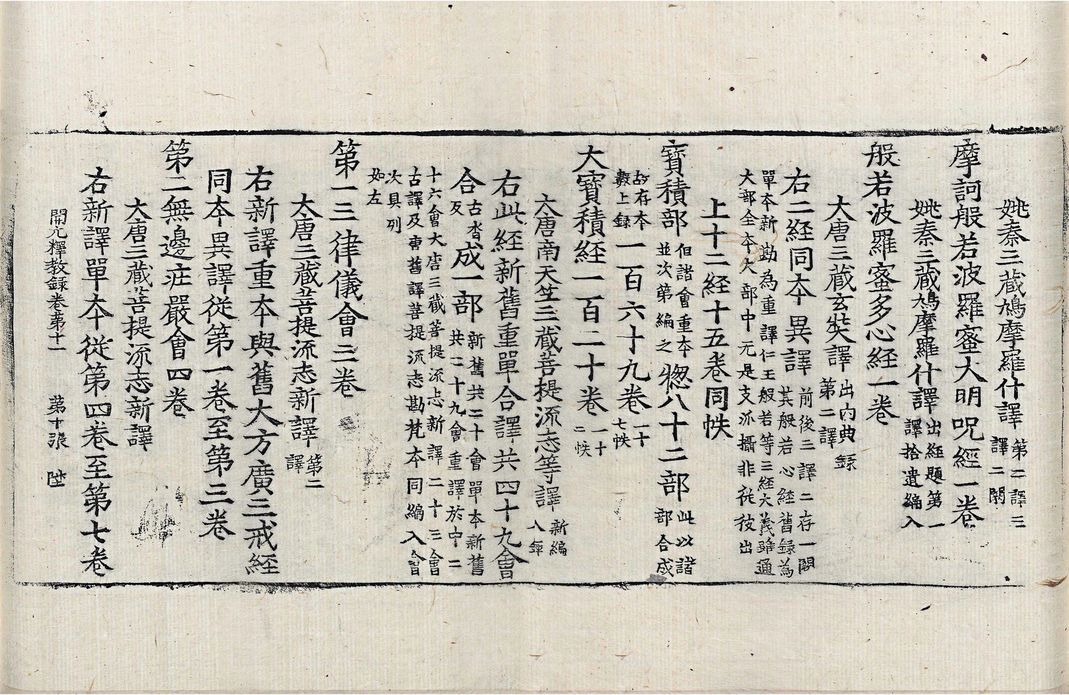 姚秦三藏鳩摩羅什譯 第二譯三
譯二闕
摩訶般若波羅蜜大明呪經一卷
姚秦三藏鳩摩羅什譯 出經題第一
譯拾遺編入
般若波羅蜜多心經一卷
大唐三藏玄奘譯 出內典錄
第二譯
右二經同本異譯 前後三譯二存一闕
其般若心經舊錄為
單本新勘為重譯仁王般若等三經大義雖通
大部全本大部中无是支派攝非從彼出
上十二經十五卷同帙
寶積部 但諸會重本
並次第編之 惣八十二部 此以諸
部合成
故存本
數上錄 一百六十九卷 一十
七帙
大寶積經一百二十卷 一十
二帙
大唐南天竺三藏菩提流志等譯 新編
入錄
右此經新舊重單合譯共四十九會
合 成一部 新舊共二十會單本新舊
共二十九會重譯於中二
十六會大唐三藏菩提流志新譯二十三會
古譯及 舊譯菩提流志勘梵本同編入會
次具列
如左
第一三律儀會三卷
大唐三藏菩提流志新譯 第二
譯
右新譯重本與舊大方廣三戒經
同本異譯從第一卷至第三卷
第二無邊莊嚴會四卷
大唐三藏菩提流志新譯
右新譯單本從第四卷至第七卷
開元釋教錄卷第十一 第十張